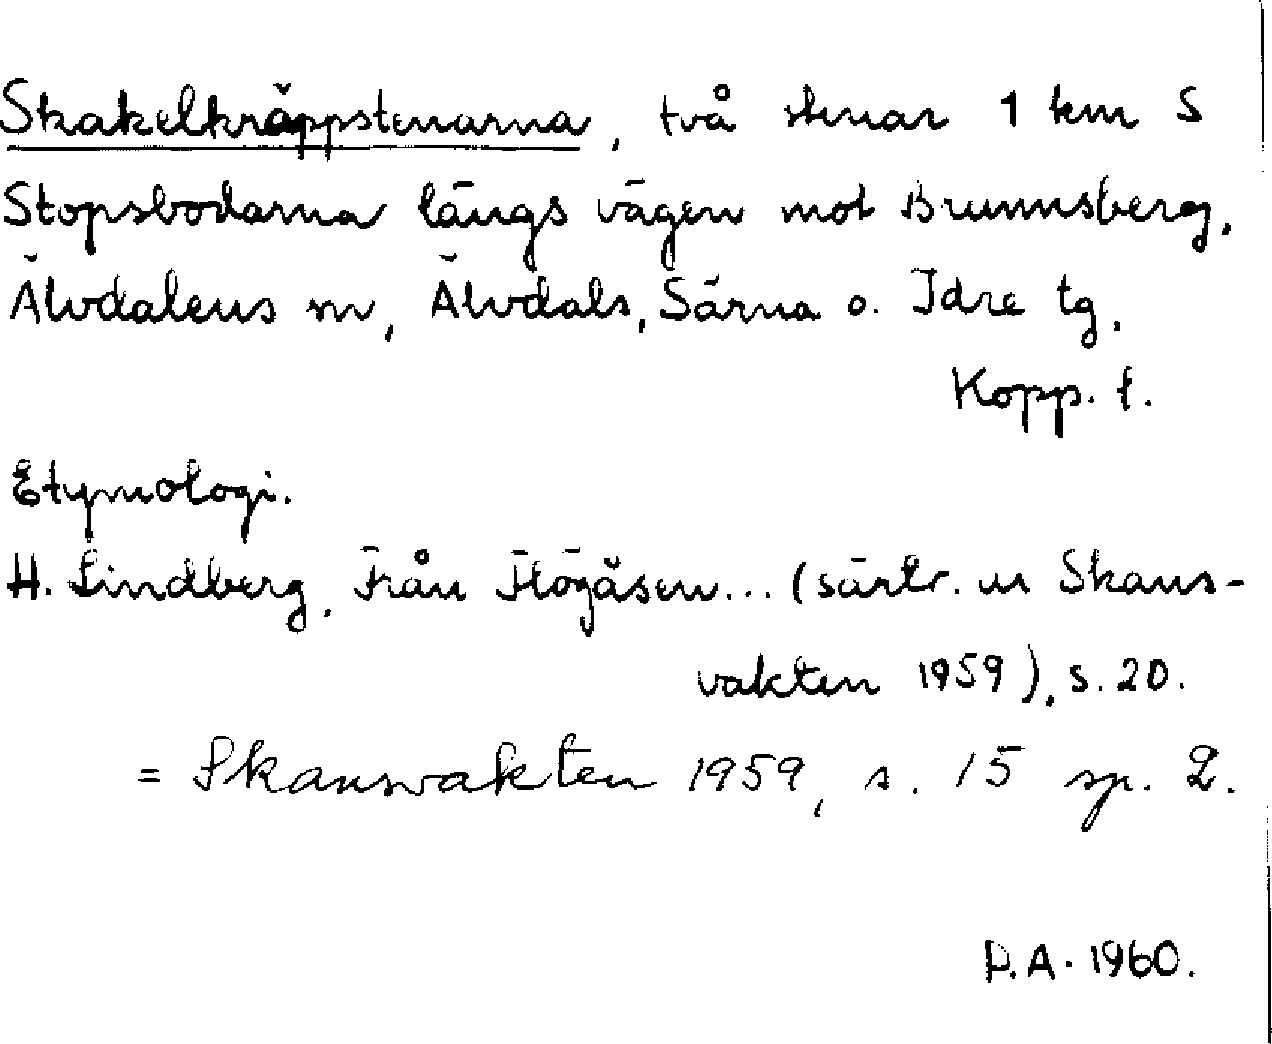 Skakelkräppstenarna, två stenar 1 km S
Stopsbodarna längs vägen mot Brunnsberg.
Älvdalens sn, Älvdals, Särna o. Idre tg.
Kopp. l.
Etymologi.
H. Lindberg, Från Högåsen... (särtr. ur Skans-
vakten 1959), s. 20.
= Skansvakten 1959, s. 15 sp. 2.
P.A. 1960.